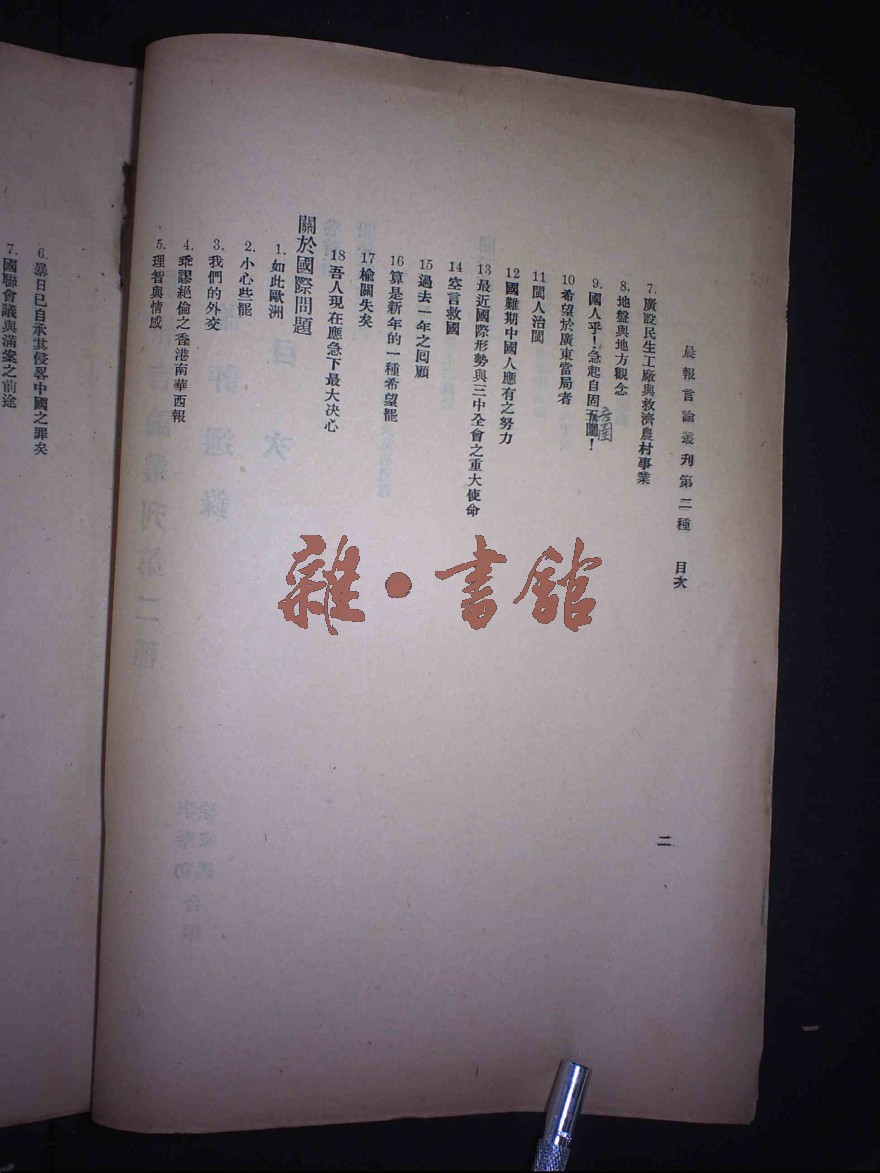 晨報言論叢刊第二種　目次
二
7. 廣設民生工廠與救濟農村事業
8. 地盤與地方觀念
9. 國人乎！急起自固五圉！
10 希望於廣東當局者
11 閩人治閩
12 國難期中國人應有之努力
13 最近國際形勢與三中全會之重大使命
14 空言救國
15 過去一年之回顧
16 算是新年的一種希望罷
17 榆關失矣
18 吾人現在應急下最大决心
關於國際問題
1. 如此歐洲
2. 小心些罷
3. 我們的外交
4. 乖謬絕倫之香港南華西報
5. 理智與情感
6. 暴日已自承其侵畧中國之罪矣
7. 國聯會議與滿案之前途
雜·書館